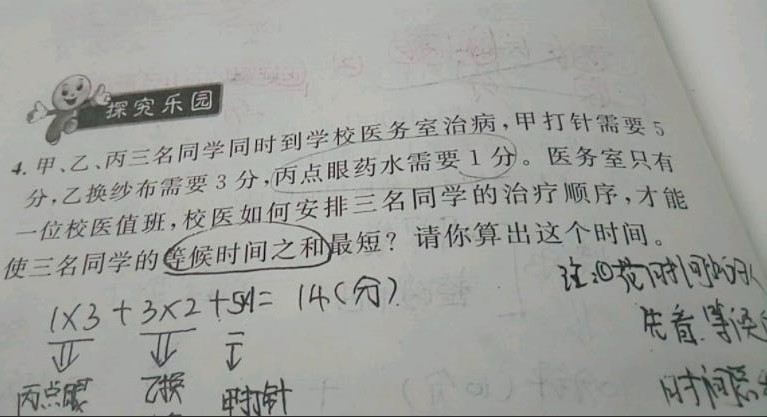 探究乐园
4. 甲、乙、丙三名同学同时到学校医务室治病,甲打针需要5
分,乙换纱布需要3分,丙点眼药水需要1分。医务室只有
一位校医值班,校医如何安排三名同学的治疗顺序,才能
使三名同学的等候时间之和最短?请你算出这个时间。
1×3+3×2+5×1=14(分)
注:①花时间
先看.等
时间
丙点眼 乙换 甲打针